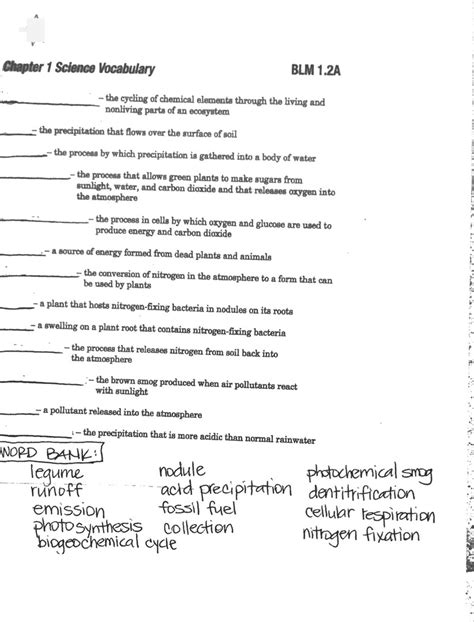 A
Chapter 1 Science Vocabulary BLM 1.2A
– the cycling of chemical elements through the living and
nonliving parts of an ecosystem
– the precipitation that flows over the surface of soil
– the process by which precipitation is gathered into a body of water
– the process that allows green plants to make sugars from
sunlight, water, and carbon dioxide and that releases oxygen into
the atmosphere
– the process in cells by which oxygen and glucose are used to
produce energy and carbon dioxide
– a source of energy formed from dead plants and animals
– the conversion of nitrogen in the atmosphere to a form that can
be used by plants
– a plant that hosts nitrogen-fixing bacteria in nodules on its roots
– a swelling on a plant root that contains nitrogen-fixing bacteria
– the process that releases nitrogen from soil back into
the atmosphere
– the brown smog produced when air pollutants react
with sunlight
– a pollutant released into the atmosphere
– the precipitation that is more acidic than normal rainwater
WORD BANK:
legume nodule photochemical smog
runoff acid precipitation dentitrification
emission fossil fuel cellular respiration
photosynthesis collection nitrogen fixation
biogeochemical cycle